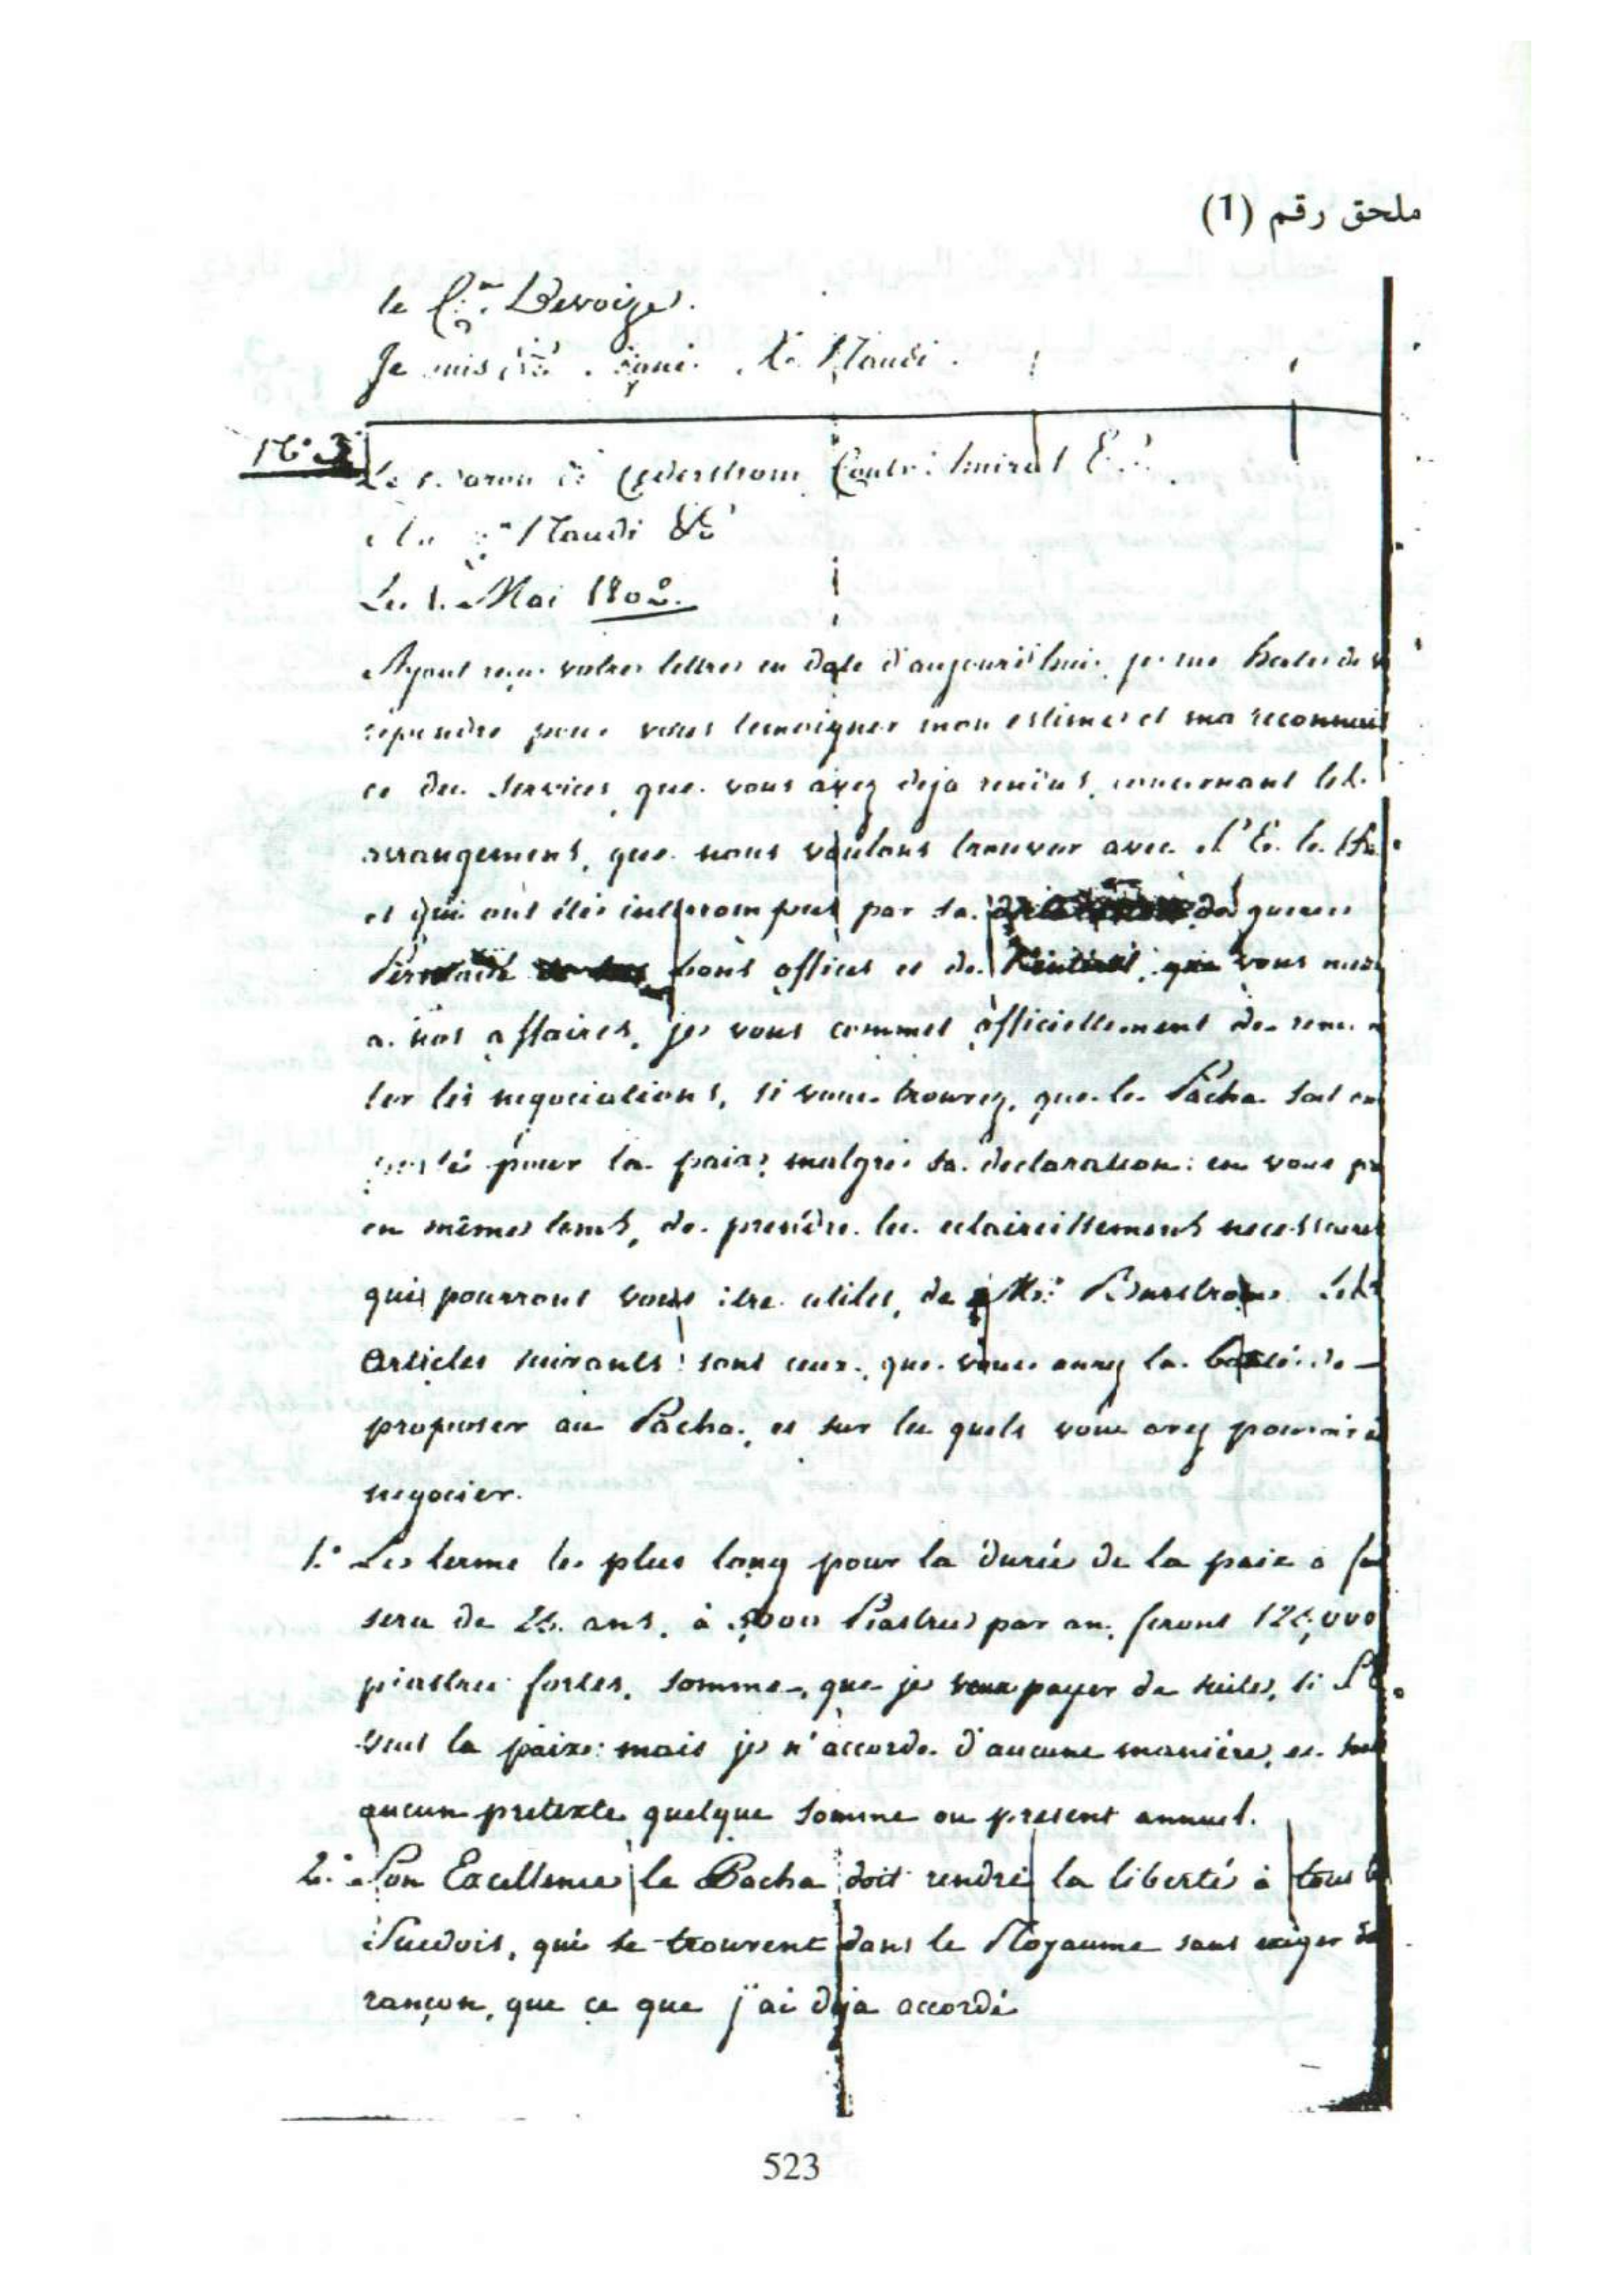 ملحق رقم (1)
le C.en Devoize.
Je suis &a. signé. Naudi.
N.° 3
Le Baron de Cederstrom Contr' Amiral &.
Au C.en Naudi &c
Le 1. Mai 1802.
Ayant reçu votre lettre en date d'aujourd'hui, je me hate de
repondre pour vous temoigner mon estime et ma reconnais
ce des services que vous avez deja rendus, concernant les
arrangemens, que nous voulons trouver avec S. E. le
et qui ont été interrompus par sa de guerre
Persuadé bons offices et de que vous
a nos affaires, je vous commet officiellement de
ter les negociations, si vous trouvez, que le Pacha soit
porté pour la paix, malgré sa declaration: en vous
en même tems, de prendre les eclaircissemens necessaires
qui pourront vous être utiles, de Mr. Burstrom. Les
Articles suivants sont ceux, que vous aurez la bonté de
proposer au Pacha, et sur les quels vous avez pouvoir
negocier.
1.° Le terme le plus long pour la durée de la paix a
sera de 25. ans, à 5000 Piastres par an, feront 125,000
piastres fortes, somme, que je veux payer de suite, si
veut la paix: mais je n'accorde d'aucune manière, et
aucun pretexte quelque somme ou present annuel.
2.° Son Excellence le Pacha doit rendre la liberté à tous
Suedois, qui se trouvent dans le Royaume sans exiger
rançon, que ce que j'ai deja accordé
523